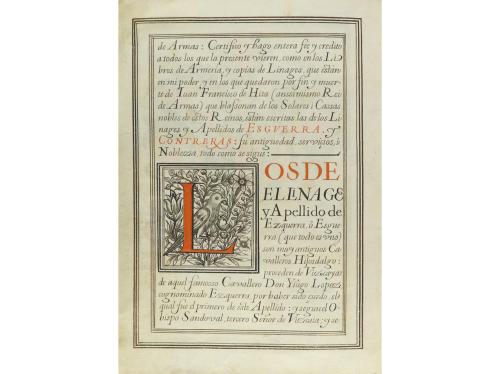 de Armas: Certifico y hago entera fee y credito
a todos los que la presente vieren, como en los Li-
bros de Armeria, y copias de Linages, que estàn
en mi poder, y en los que quedaron por fin y muer-
te de Juan Francisco de Hita (antissimo Rei
de Armas) que blassonan de los Solares i Cassas
nobles de estos Reinos, estàn escritas las de los Li-
nages y Apellidos de ESGUERRA, y
CONTRERAS: su antiguedad, servicios, i
Nobleza, todo como se sigue:
LOS DE
EL LINAGE
y Apellido de
Ezquerra, ò Esgue-
rra (que todo es uno)
son muy antiguos Ca-
valleros Hijosdalgo:
proceden de Vizcaya
de aquel famosso Cavallero Don Yñigo Lopez
cognominado Ezquerra, por haber sido zurdo, el
qual fue el primero de este Apellido: y segun el O-
bispo Sandoval, tercero Señor de Vizcaia; y se-